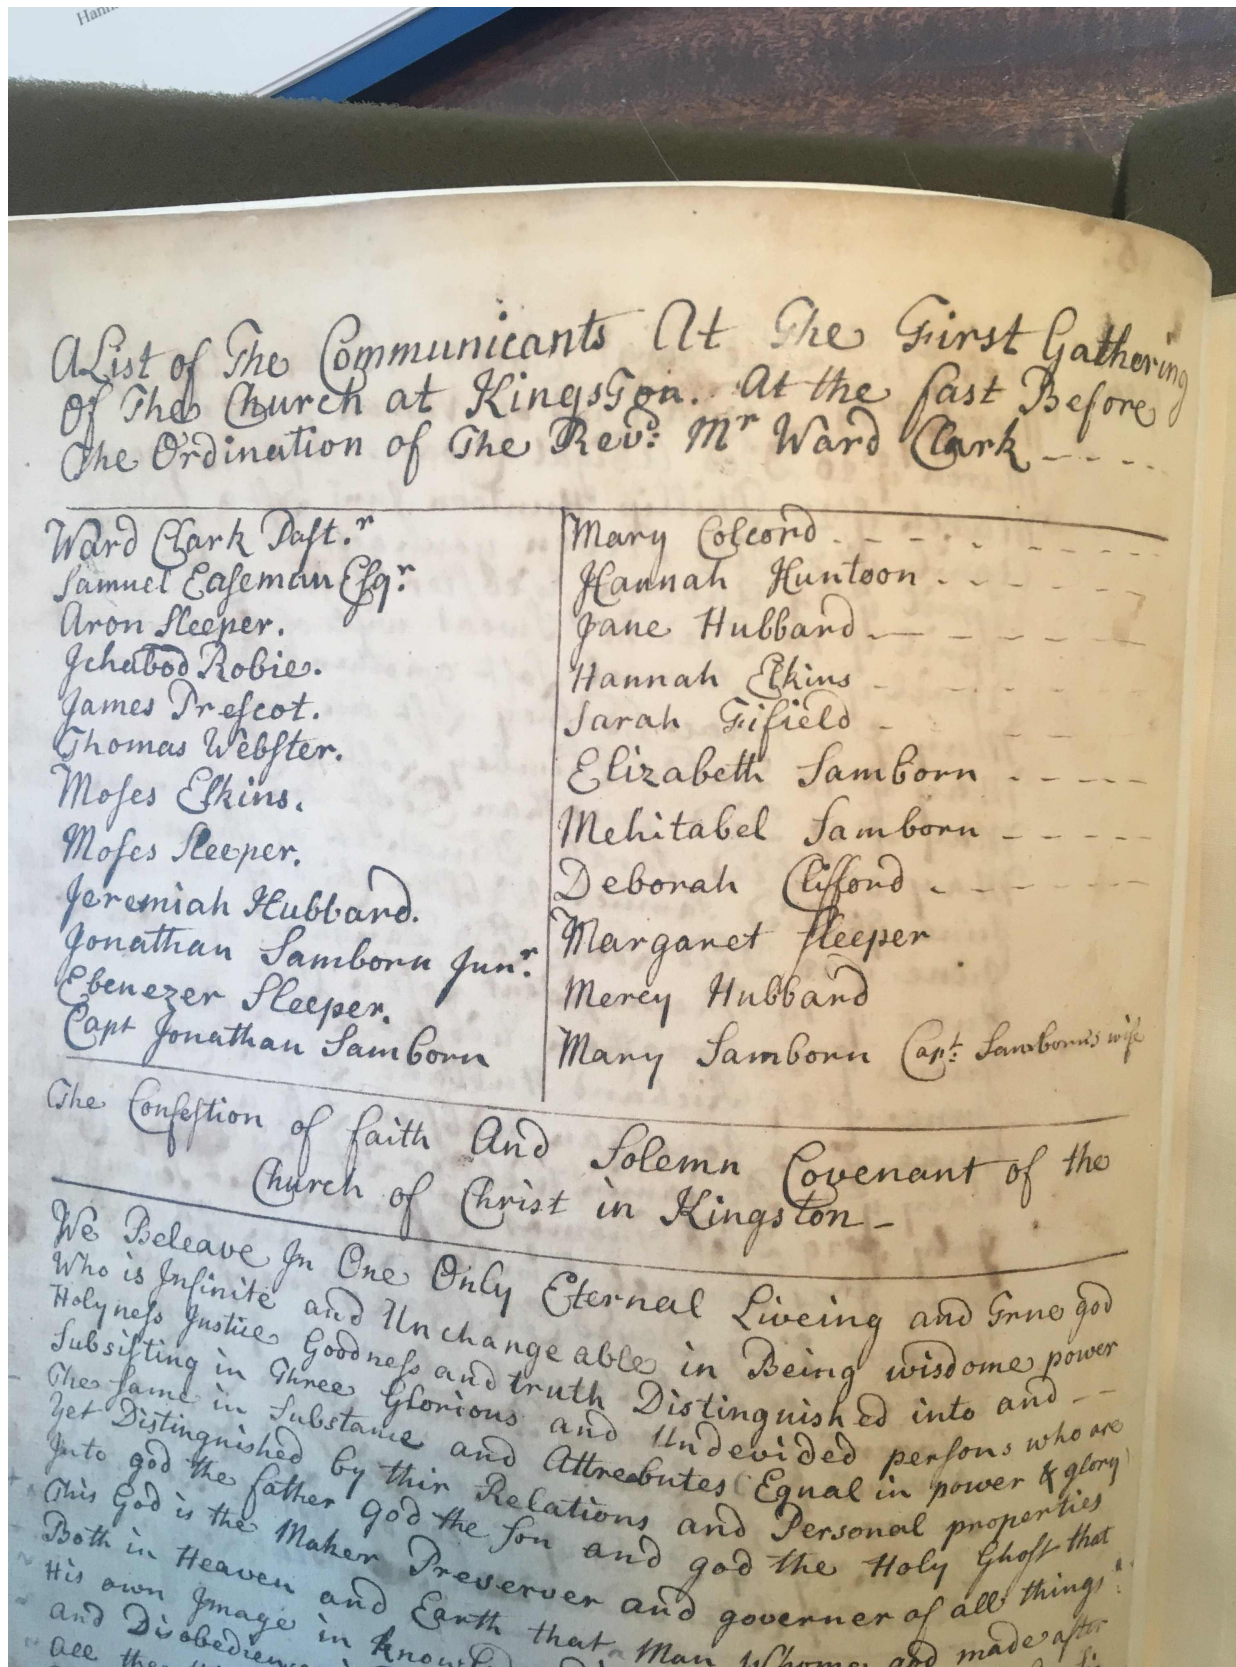 Hann
A List of The Communicants At The First Gathering
Of The Church at Kingston. At the fast Before
The Ordination of The Revd: Mr Ward Clark - - - -
Ward Clark Paſt.r
Samuel Eaſeman Eſqr.
Aron Sleeper.
Ichabod Robie.
James Preſcot.
Thomas Webſter.
Moſes Elkins.
Moſes Sleeper.
Jeremiah Hubbard.
Jonathan Samborn Junr.
Ebenezer Sleeper.
Capt Jonathan Samborn
Mary Colcord - - - - - - -
Hannah Huntoon - - - - -
Jane Hubbard - - - - - -
Hannah Elkins - - - - -
Sarah Fifield - - - -
Elizabeth Samborn - - - - -
Mehitabel Samborn - - - - -
Deborah Clifford - - - - - -
Margaret Sleeper
Mercy Hubbard
Mary Samborn Capt: Samborn's wife
The Confeſtion of faith And Solemn Covenant of the
Church of Christ in Kingston -
We Beleave In One Only Eternal Liveing and True god
Who is Infinite and Unchangeable in Being wisdome power
Holyneſs Justice Goodneſs and truth Distinguished into and - -
Subsiſting in Three Glorious and Undevided perſons who are
The ſame in Substance and Attrebutes Equal in power & glory
Yet Distinguished by thir Relations and Personal properties
Into god the father God the ſon and god the Holy Ghoſt that
This God is the Maker Preserver and governer of all things
Both in Heaven and Earth that Man Whome god made after
His own Image in
and
all